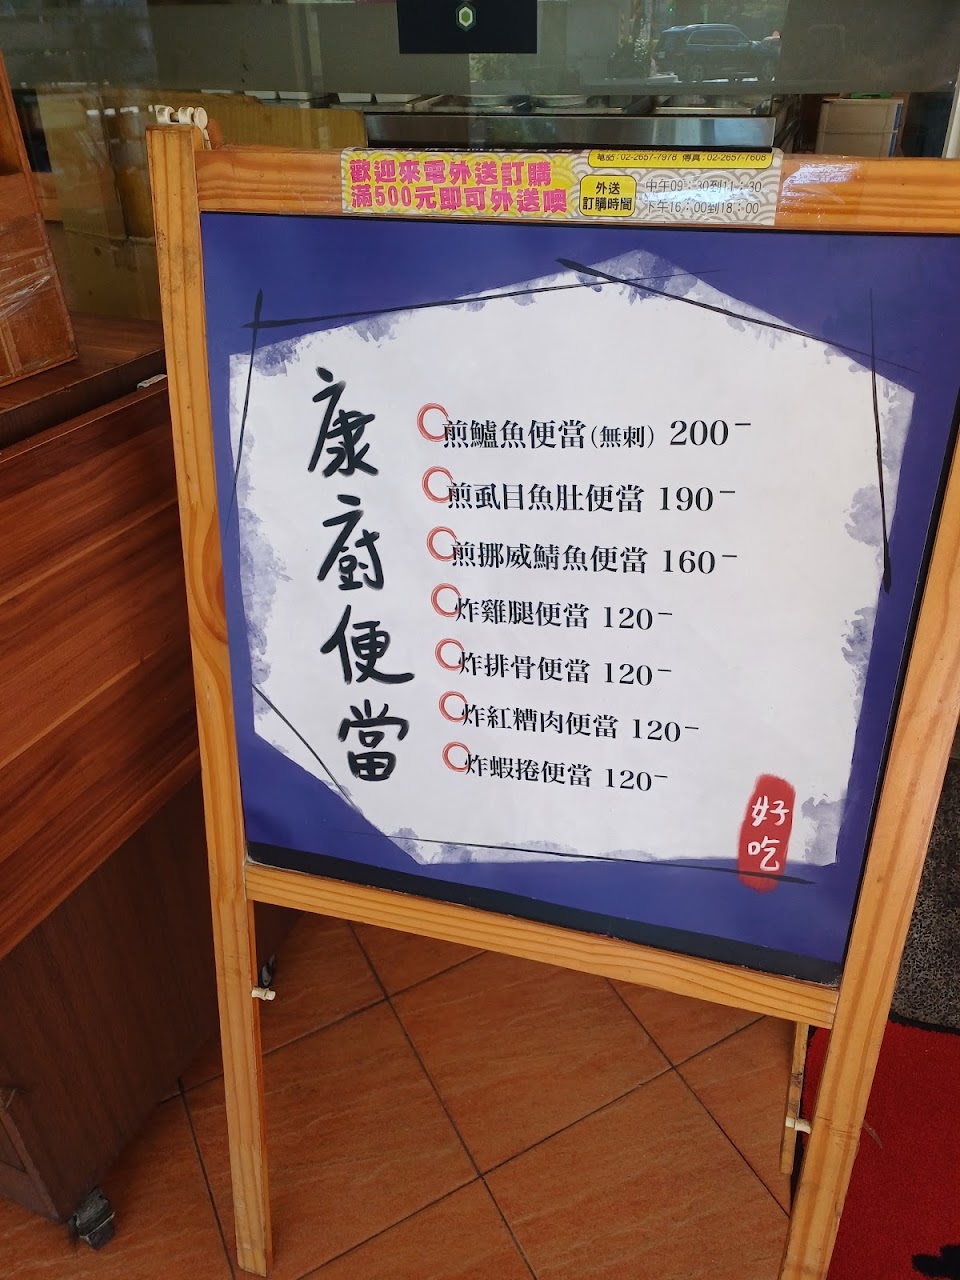 歡迎來電外送訂購
滿500元即可外送噢
電話:02-2657-7978 傳真:02-2657-7608
外送
訂購時間
中午09:30到11:30
下午16:00到18:00
康廚便當
煎鱸魚便當(無刺) 200-
煎虱目魚肚便當 190-
煎挪威鯖魚便當 160-
炸雞腿便當 120-
炸排骨便當 120-
炸紅糟肉便當 120-
炸蝦捲便當 120-
好吃